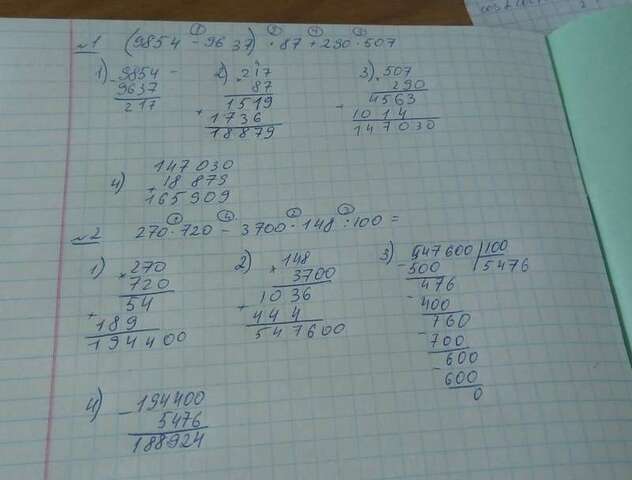 №1 (9854 - 9637) · 87 + 290 · 507
1) 9854 -
9637
217
2) 217
87
1519
+
1736
18879
3) 507
290
4563
+
1014
147030
4) 147030
+ 18879
165909
№2 270 · 720 - 3700 · 148 : 100 =
1) × 270
720
54
+
189
194400
2) × 148
3700
1036
+
444
547600
3) 547600 | 100
- 500 5476
476
- 400
760
- 700
600
- 600
0
4) - 194400
5476
188924